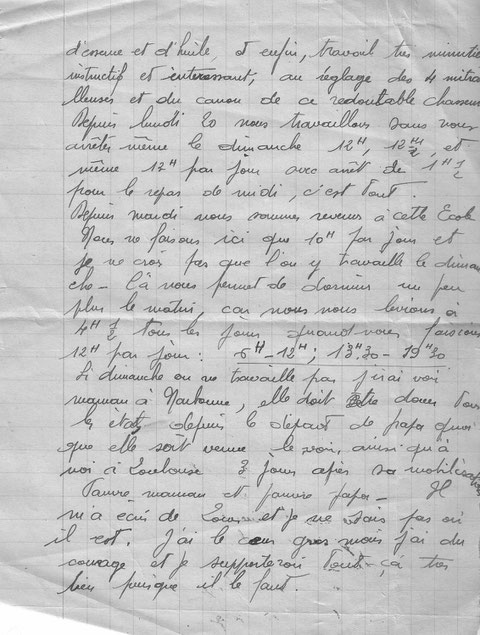 d'essence et d'huile, et enfin, travail très minutie
instructif et intéressant, au réglage des 4 mitra
illeuses et du canon de ce redoutable chasseur
Depuis lundi 20 nous travaillons sans nous
arrêter même le dimanche 12H, 12H 1/2, et
même 17H par jour avec arrêt de 1H 1/2
pour le repas de midi, c'est tout.
Depuis mardi nous sommes revenus à cette Ecole
Nous ne faisons ici que 10H par jour et
je ne crois pas que l'on y travaille le diman
che - Cà nous permet de dormir un peu
plus le matin, car nous nous levions à
4H 1/2 tous les jours quand nous faisions
12H par jour : 6H-12H ; 13H30 - 19H30
Si dimanche on ne travaille pas j'irai voir
maman à Narbonne, elle doit être dans tous
les états depuis le départ de papa quoi
que elle soit venue le voir, ainsi qu'à
moi à Toulouse 3 jours après sa mobilisation
Pauvre maman et pauvre papa - Il
m'a écrit de et je ne sais pas où
il est. J'ai le cœur gros mais j'ai du
courage et je supporterai tout çà très
bien puisque il le faut.